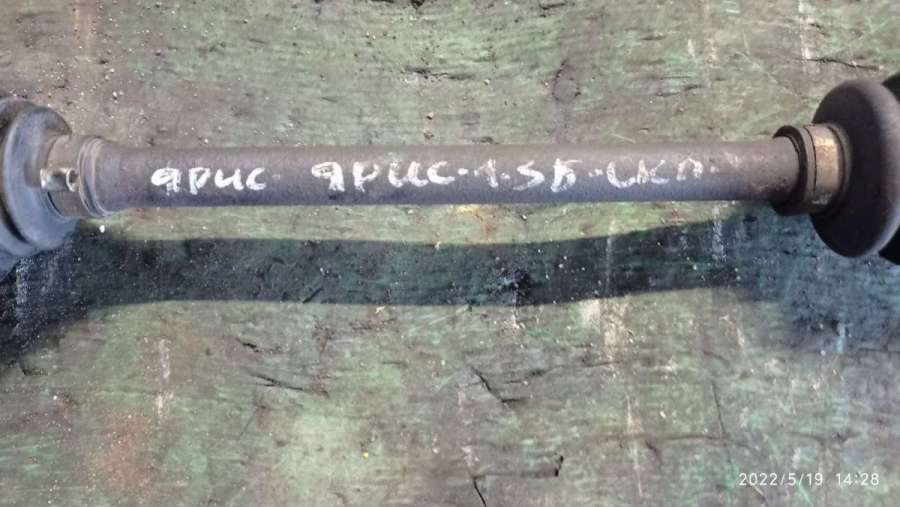 ярис ярис·1.5Б·цкп·
2022/5/19 14:28